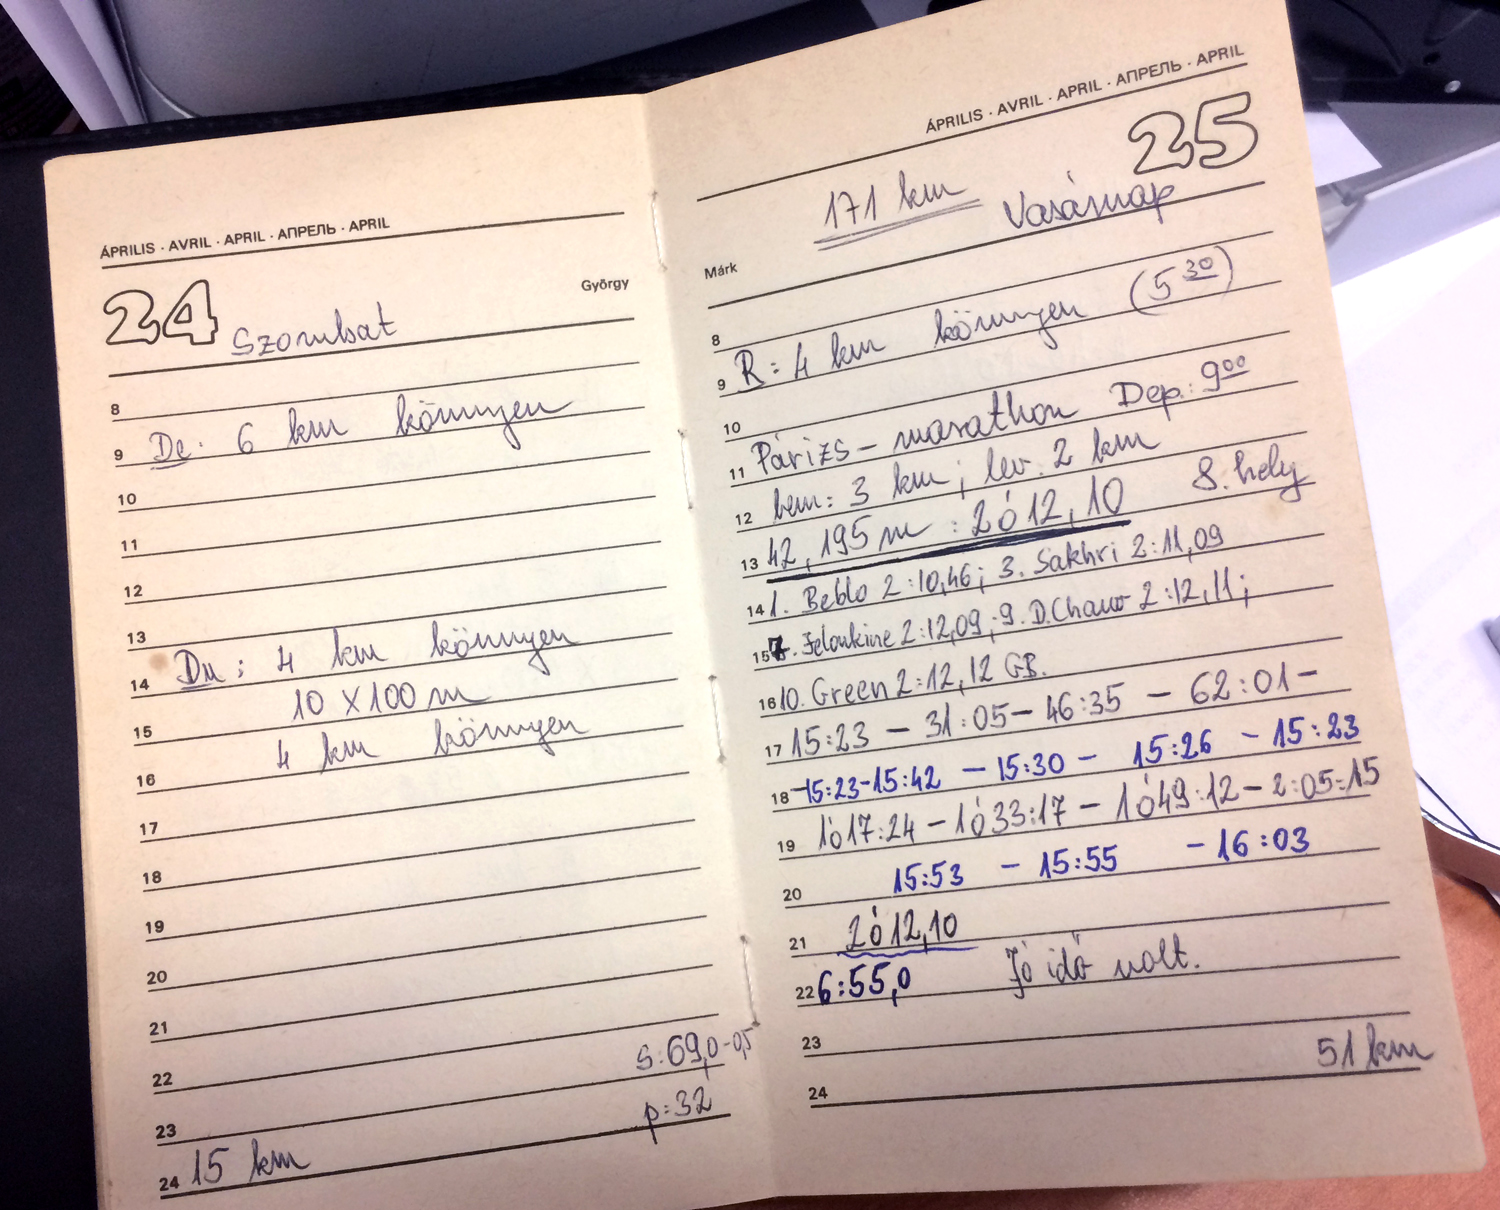 ÁPRILIS · AVRIL · APRIL · АПРЕЛЬ · APRIL
24 Szombat György
8
9 De: 6 km könnyen
10
11
12
13
14 Du: 4 km könnyen
15 10 X 100 m
16 4 km könnyen
17
18
19
20
21
22 s: 69,0 - 0,5
23 p = 32
24 15 km
ÁPRILIS · AVRIL · APRIL · АПРЕЛЬ · APRIL
25
171 km Vasárnap
Márk
8
9 R: 4 km könnyen (5 30)
10
11 Párizs - marathon Dep: 9 00
12 bem: 3 km; lev. 2 km
13 42,195 m : 2ó12,10 8. hely
14 1. Beblo 2:10,46; 3. Sakhri 2:11,09
15 7. Jelonkine 2:12,09; 9. D.Chauv 2:12,11;
16 10. Green 2:12,12 GB.
17 15:23 - 31:05 - 46:35 - 62:01 -
18 -15:23-15:42 - 15:30 - 15:26 - 15:23
19 1ó17:24 - 1ó33:17 - 1ó49:12 - 2:05:15
20 15:53 - 15:55 - 16:03
21 2ó12,10
22 6:55,0 Jó idő volt.
23
51 km
24